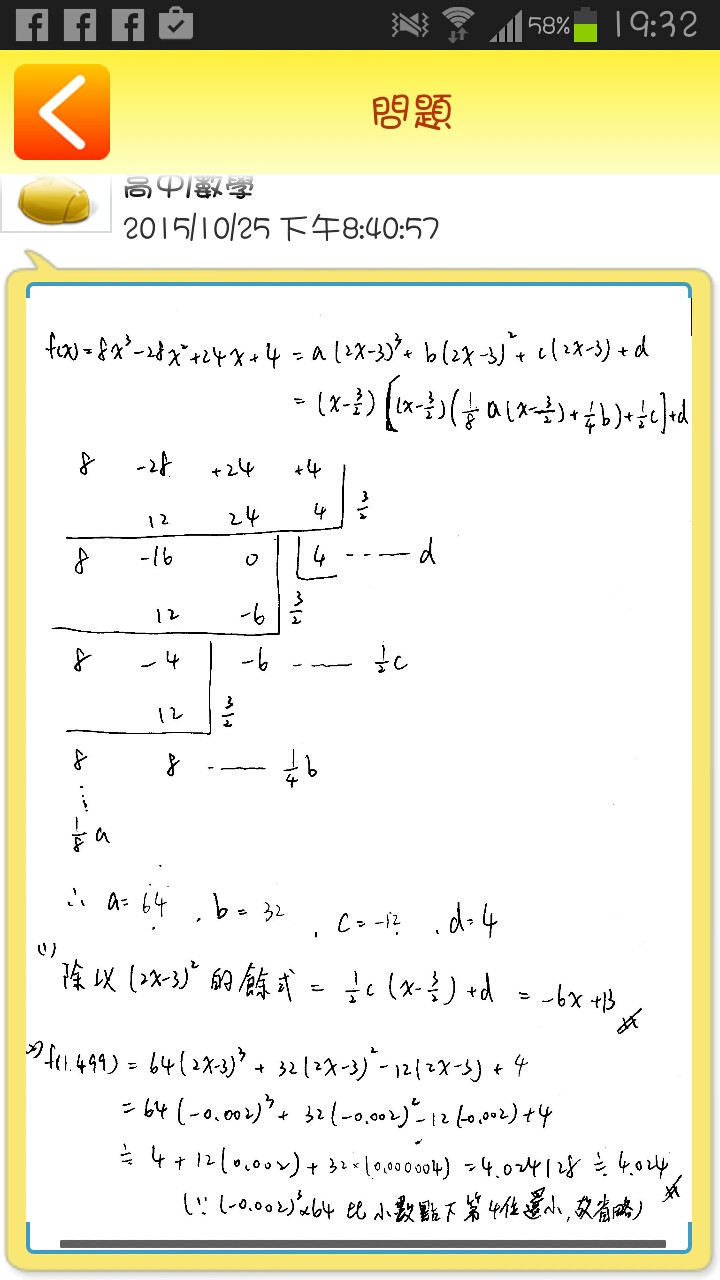 58% 19:32
問題
高中/數學
2015/10/25 下午8:40:57
f(x)=8x³-28x²+24x+4 = a(2x-3)³+b(2x-3)²+c(2x-3)+d
= (x-3/2)[(x-3/2)(1/8 a(x-3/2)+1/4 b)+1/2 c]+d
8 -28 +24 +4
12 24 4 3/2
8 -16 0 4 ------ d
12 -6 3/2
8 -4 -6 ------ 1/2 c
12 3/2
8 8 ------ 1/4 b
1/8 a
∴ a=64, b=32, c=-12, d=4
(1)
除以(2x-3)²的餘式 = 1/2 c(x-3/2)+d = -6x+13
(2) f(1.499) = 64(2x-3)³+32(2x-3)²-12(2x-3)+4
= 64(-0.002)³+32(-0.002)²-12(-0.002)+4
≒ 4+12(0.002)+32×(0.000004) = 4.024128 ≒ 4.024
(∵ (-0.002)³×64 比小數點下第4位還小,故省略)